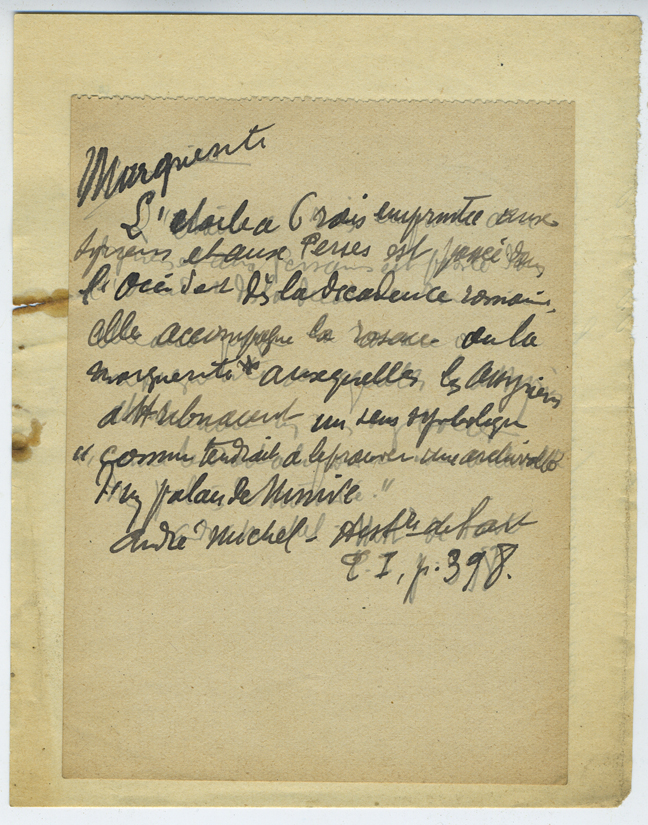 Marguerite
L'étoile a 6 rais empruntée aux
Syriens et aux Perses est passée dans
l'Occident dès la décadence romaine,
elle accompagne la rosace ou la
marguerite auxquelles les Assyriens
attribuaient un sens symbolique
"comme tendrait a le prouver une archivolte
d'un palais de Ninive."
André Michel - Histre de l'art
T. I, p. 398.